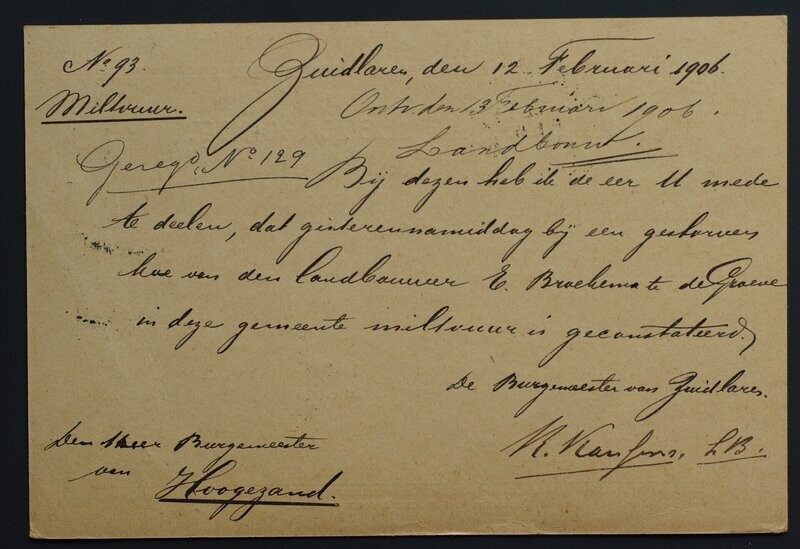 No 93. Zuidlaren, den 12 Februari 1906.
Miltvuur. Ontv. den 13 Februari 1906.
Landbouw.
Geregd. No 129
Bij dezen heb ik de eer U mede
te deelen, dat gisterennamiddag bij een gestorven
koe van den landbouwer E. Broekema te de Groeve
in deze gemeente miltvuur is geconstateerd.
De Burgemeester van Zuidlaren.
Den Heer Burgemeester
van
Hoogezand.
L.B.